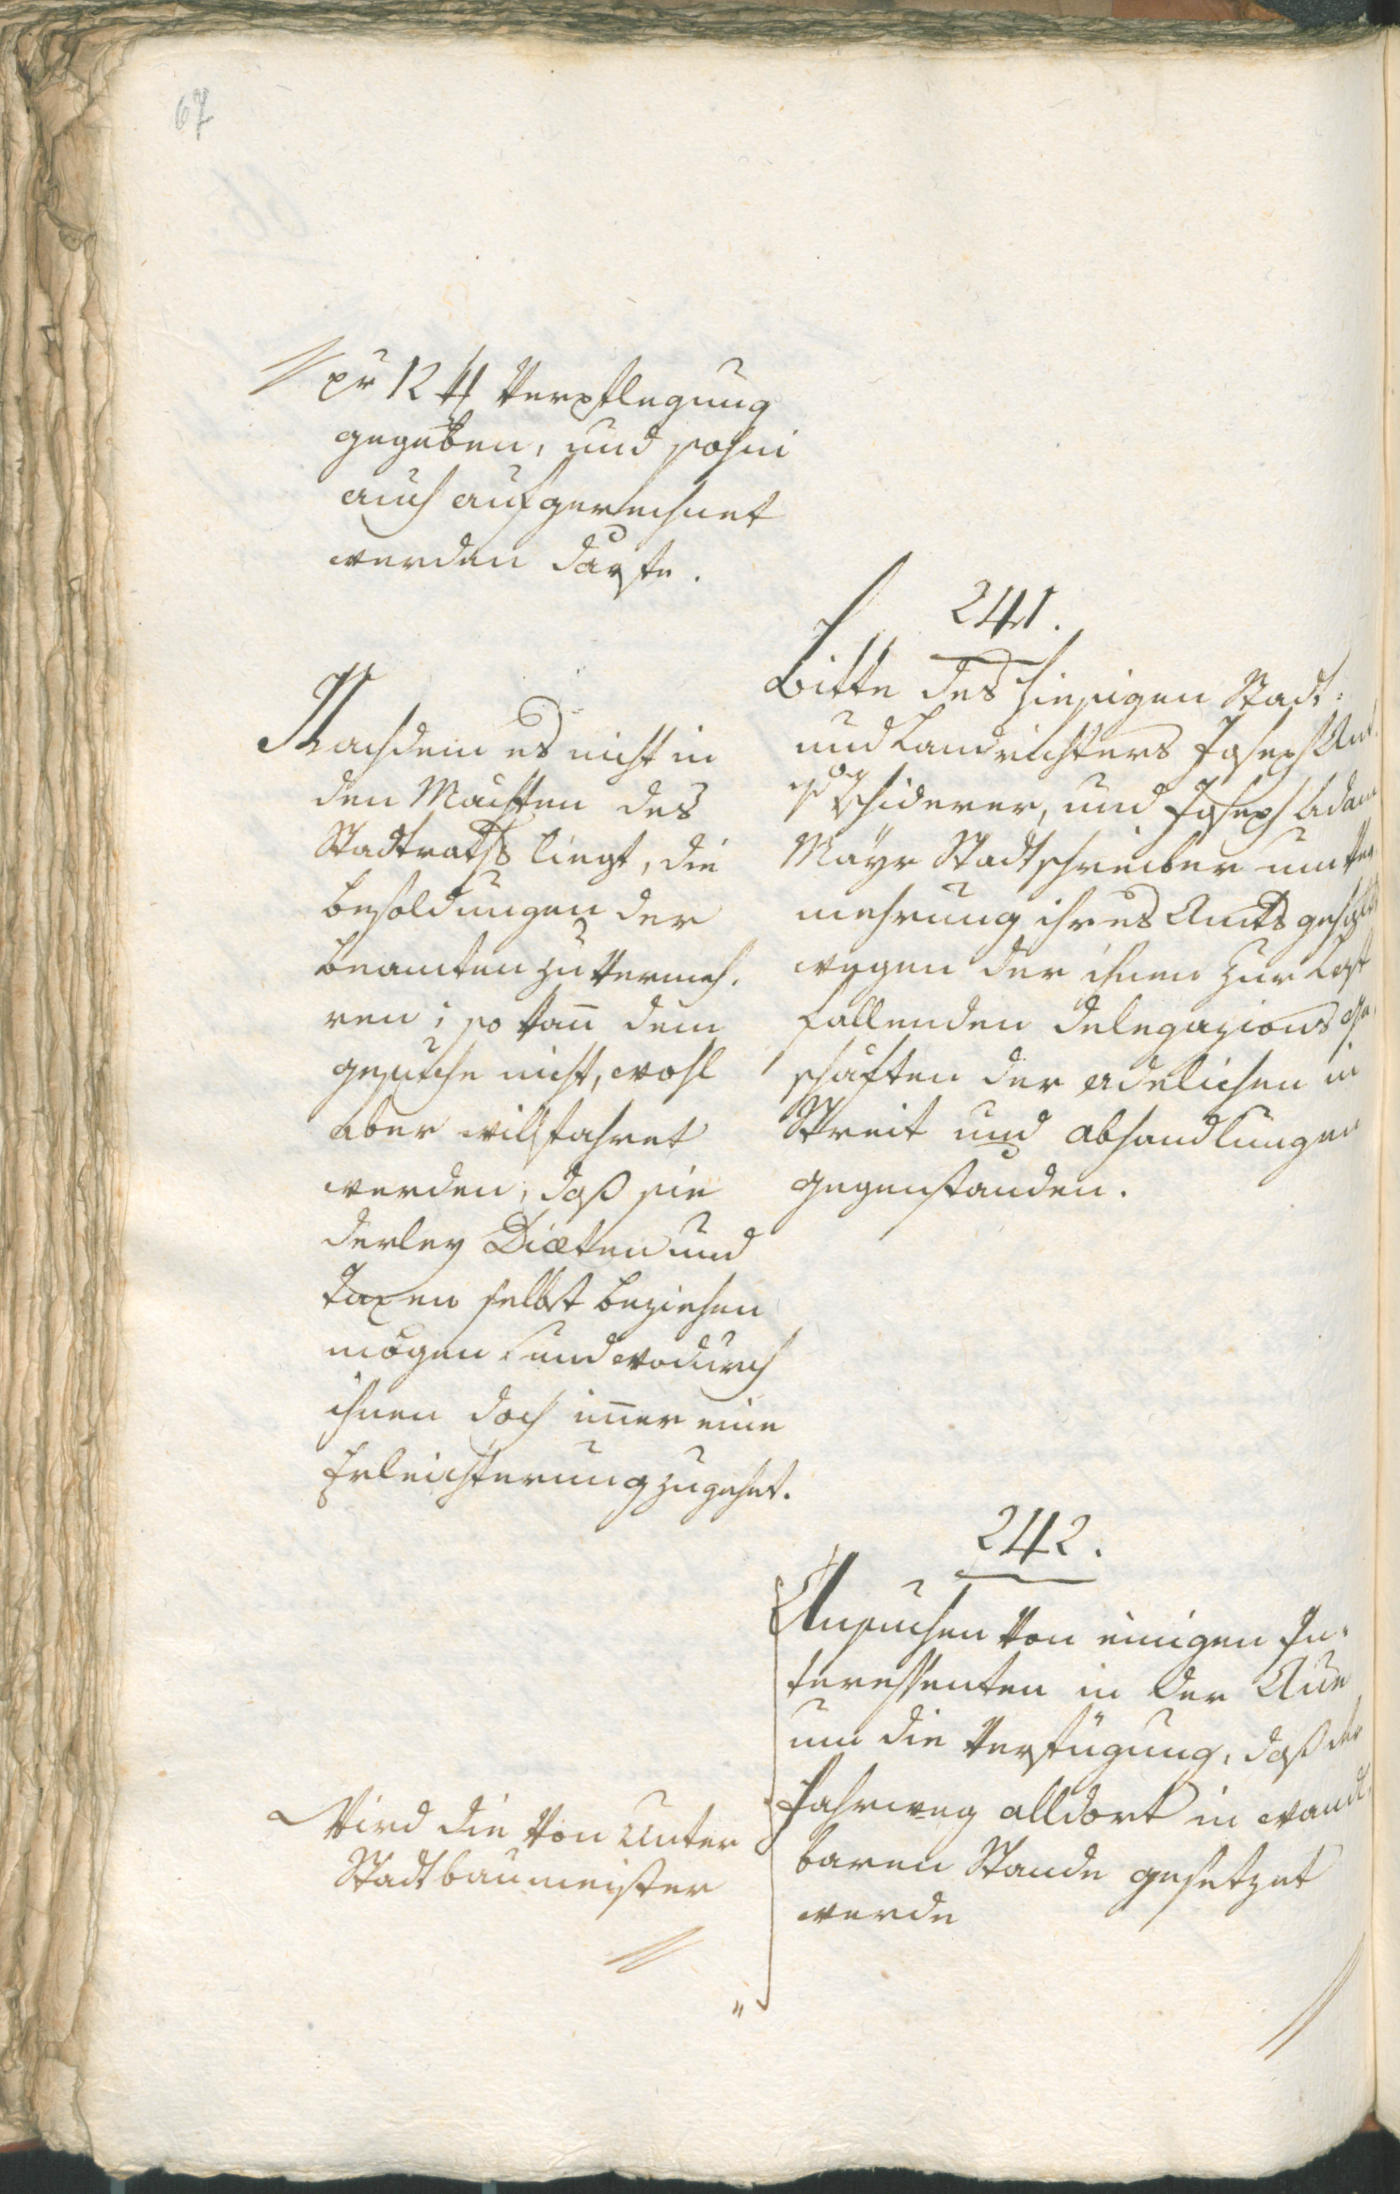 67
pr 12 # Verpflegung
gegeben, und sohin
auch aufgerechnet
werden dürfte.
241.
Bitte des hiesigen Stadt-
und Landrichters Joseph Ant.
Tschiderer, und Joseph Adam
Mayr Stadtschreiber um Ver
mehrung ihres Amts gehalts
wegen der ihnen zur Last
fallenden Delegazions Ge,
schäften der adelichen in
Streit und Abhandlungen
gegenständen.
Nachdem es nicht in
den Mächten des
Stadtraths liegt, die
Besoldungen der
Beamten zu vermeh.
ren; so kañ dem
gesuche nicht, wohl
aber willfahret
werden, daß sie
derley Diæten und
Taxen selbst beziehen
mögen, und wodurch
ihnen doch im̅er eine
Erleichterung zugehet.
242.
Ansuchen von einigen In-
teressenten in der Aue
um die Verfügung, daß der
Fahrweg alldort in wandl
baren Stande gesetzet
werde
Wird die von Unter
Stadtbaumeister